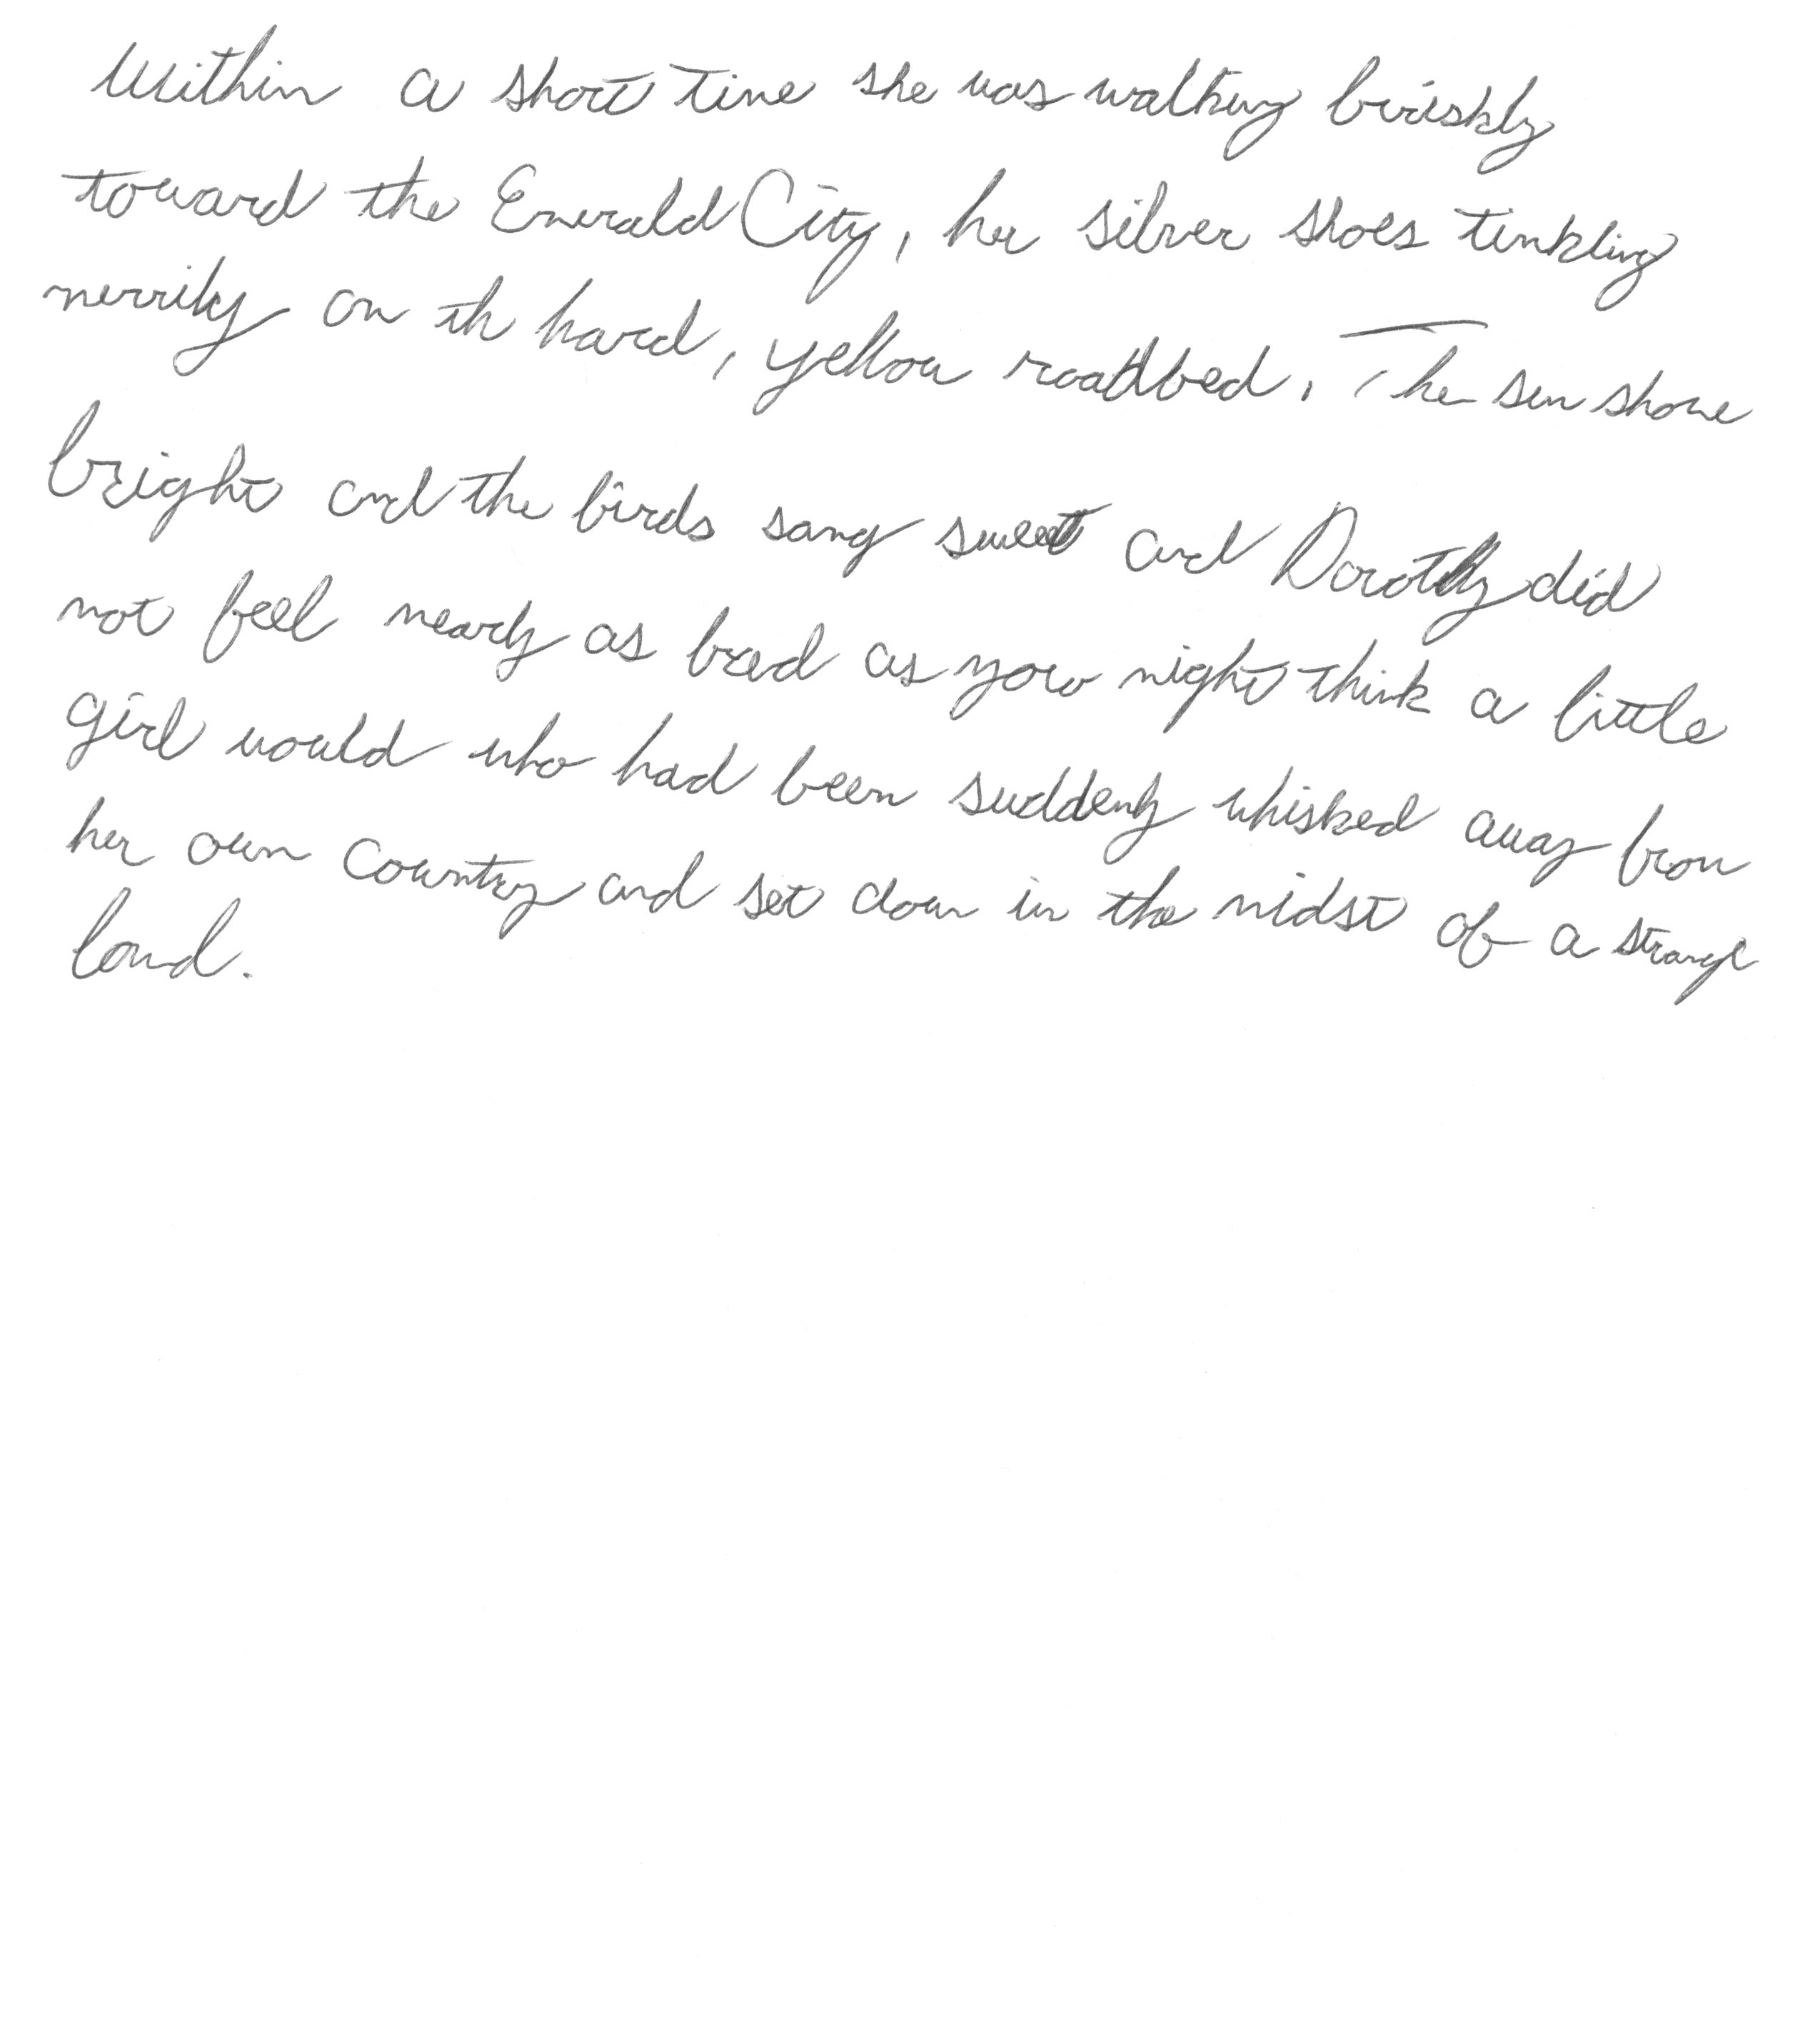 Within a short time she was walking briskly
toward the Emerald City, her silver shoes tinkling
merrily on th hard, yellow roadbed. The sun shone
bright and the birds sang sweet and Dorothy did
not feel nearly as bad as you might think a little
girl would who had been suddenly whisked away from
her own country and set down in the midst of a strange
land.